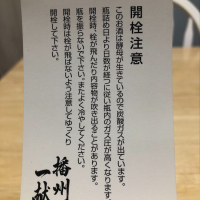 開栓注意
このお酒は酵母が生きているので炭酸ガスが出ています。
瓶詰め日より日数が経つに従い瓶内のガス圧が高くなります。
開栓時、栓が飛んだり内容物が吹き出ることがあります。
瓶を振らないで下さい。またよく冷やしてください。
開栓時は栓が飛ばないよう注意してゆっくり
開栓して下さい。
播州
一献